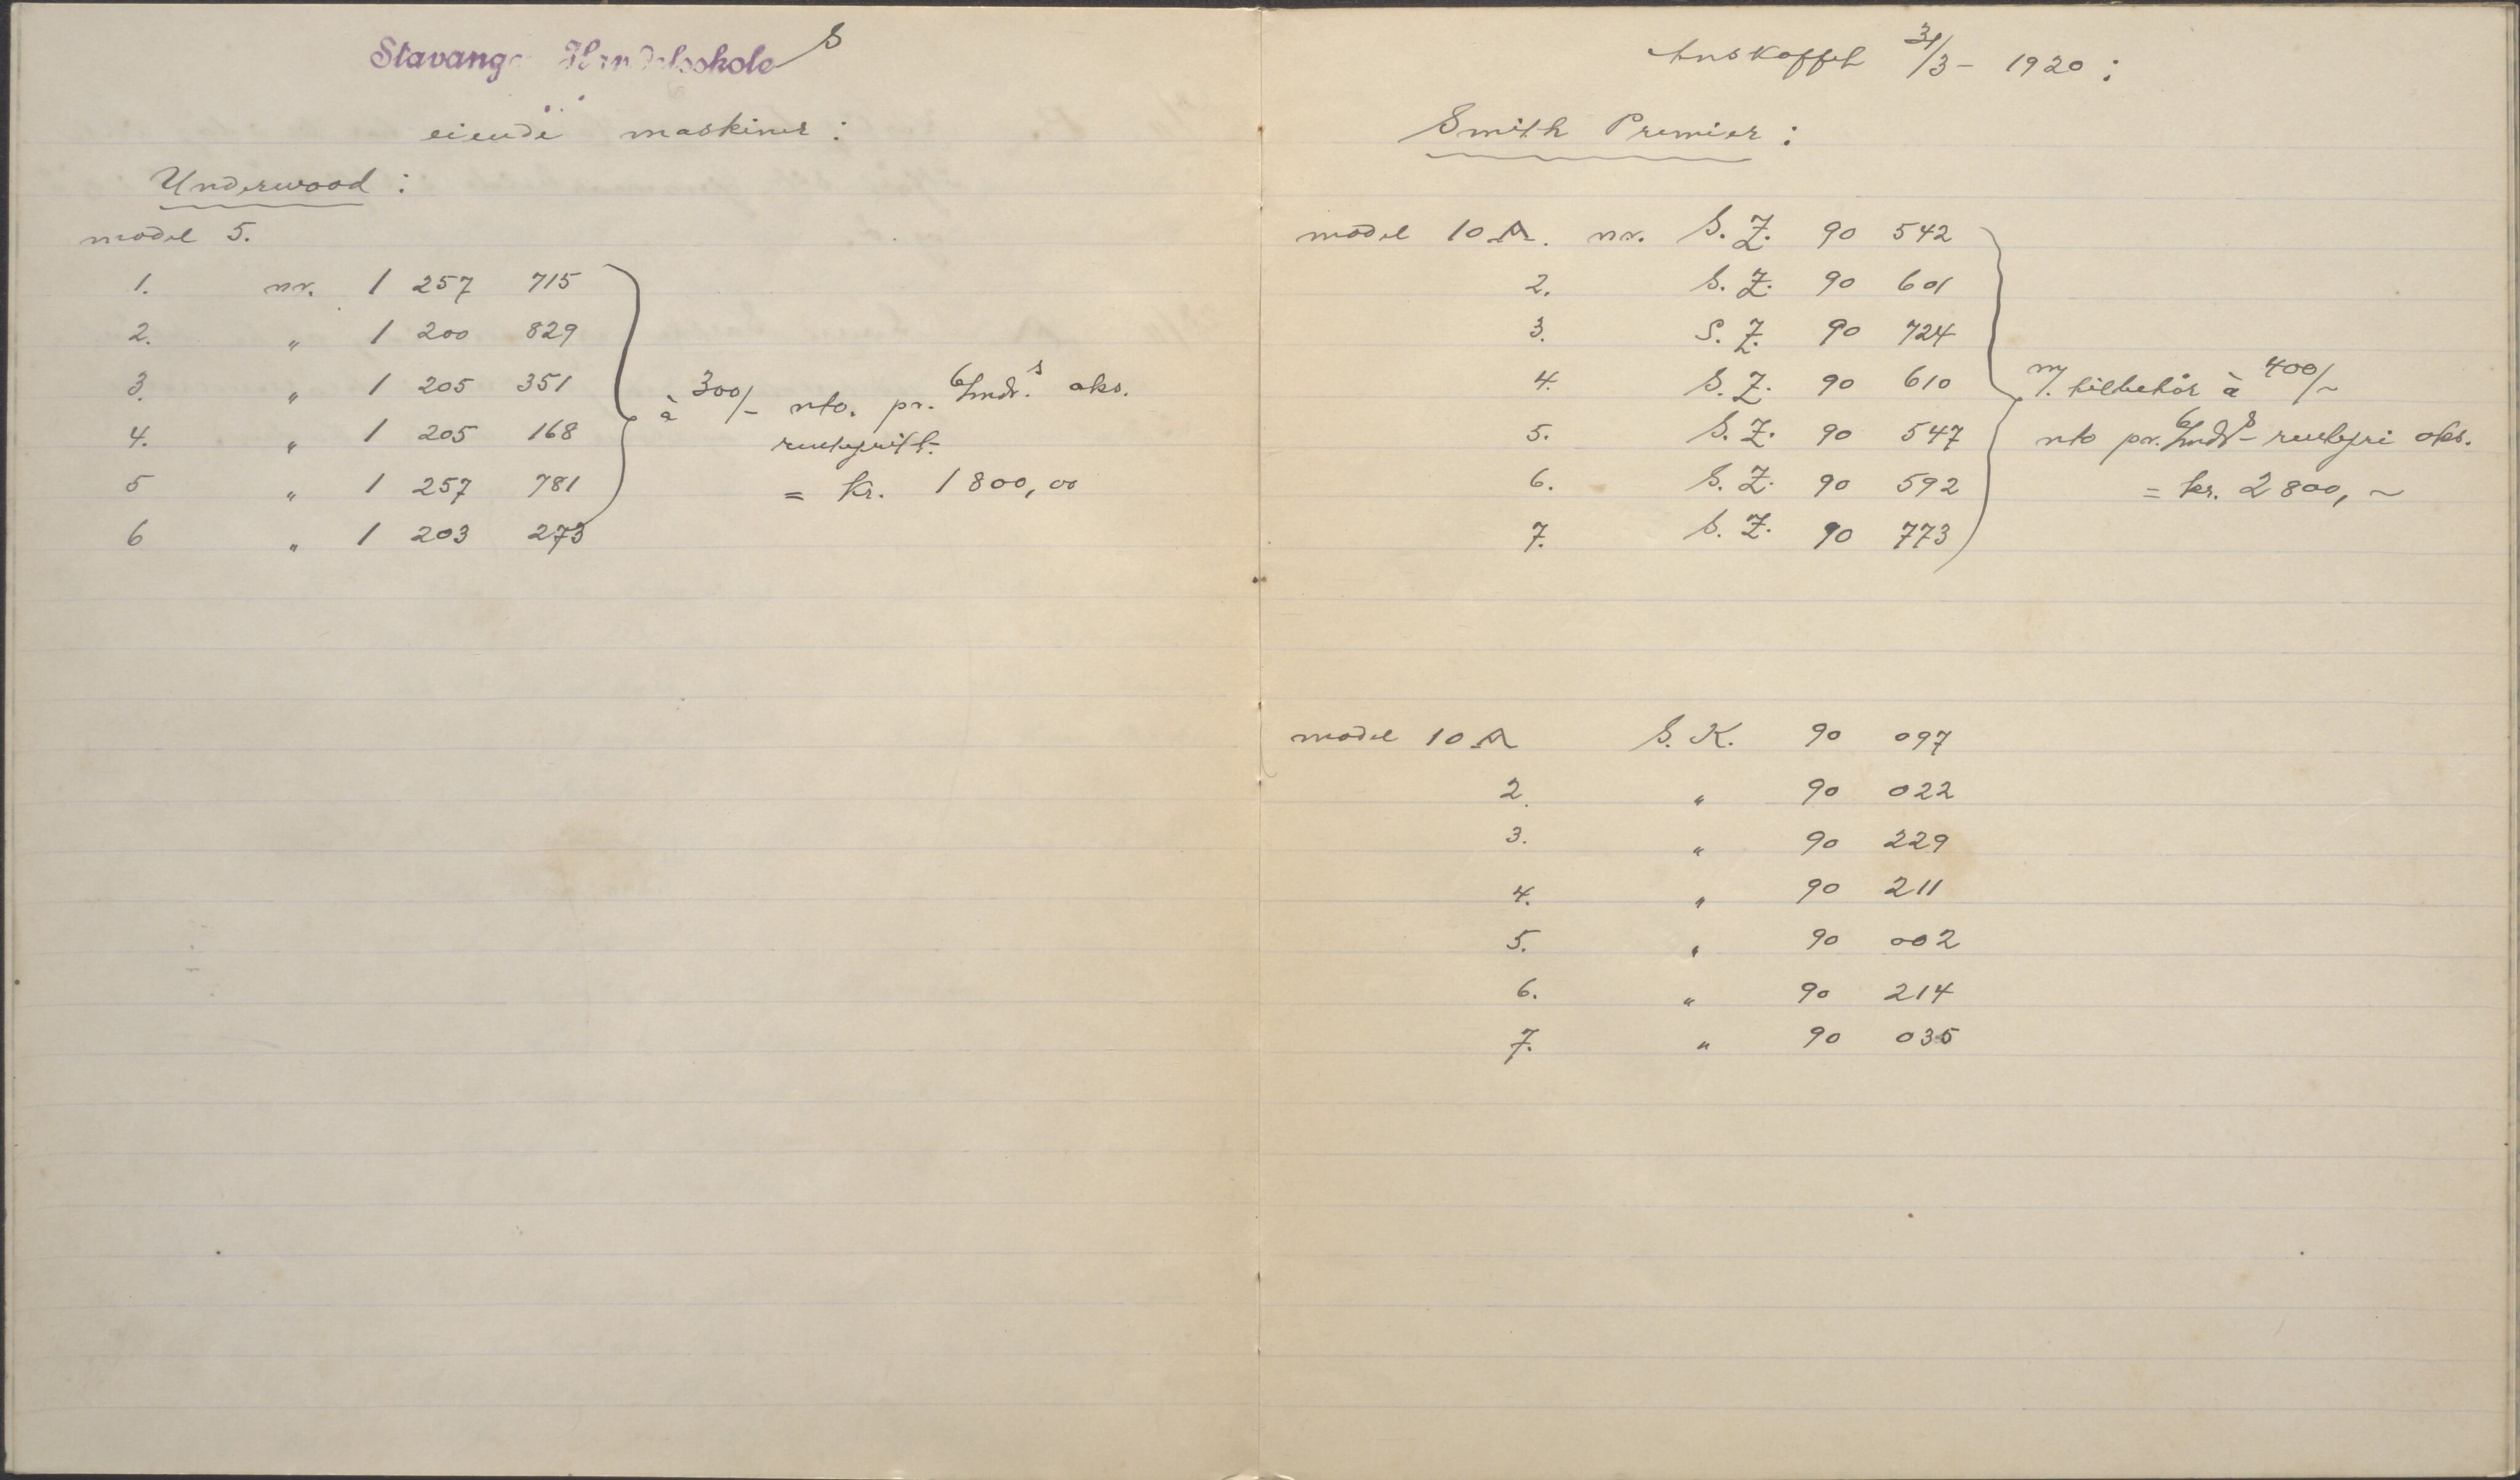 Stavanger Handelsskole s
eiende maskiner :
Underwood :
model 5.
1. nr. 1 257 715
2. " 1 200 829
3. " 1 205 351
4. " 1 205 168
5 " 1 257 781
6 " 1 203 273
à 300/- nto. pr. 6/mdr.s aks.
rentefritt.
= kr. 1 800,00
Anskaffet 31/3 - 1920 :
Smith Premier :
model 10 A. nr. S. Z. 90 542
2. S. Z. 90 601
3. S. Z. 90 724
4. S. Z. 90 610
5. S. Z. 90 547
6. S. Z. 90 592
7. S. Z. 90 773
m/. tilbehör à 400/~
nto pr. 6/mdrs - rentefri aks.
= kr. 2 800, ~
model 10 A S. K. 90 097
2. " 90 022
3. " 90 229
4. " 90 211
5. " 90 002
6. " 90 214
7. " 90 035